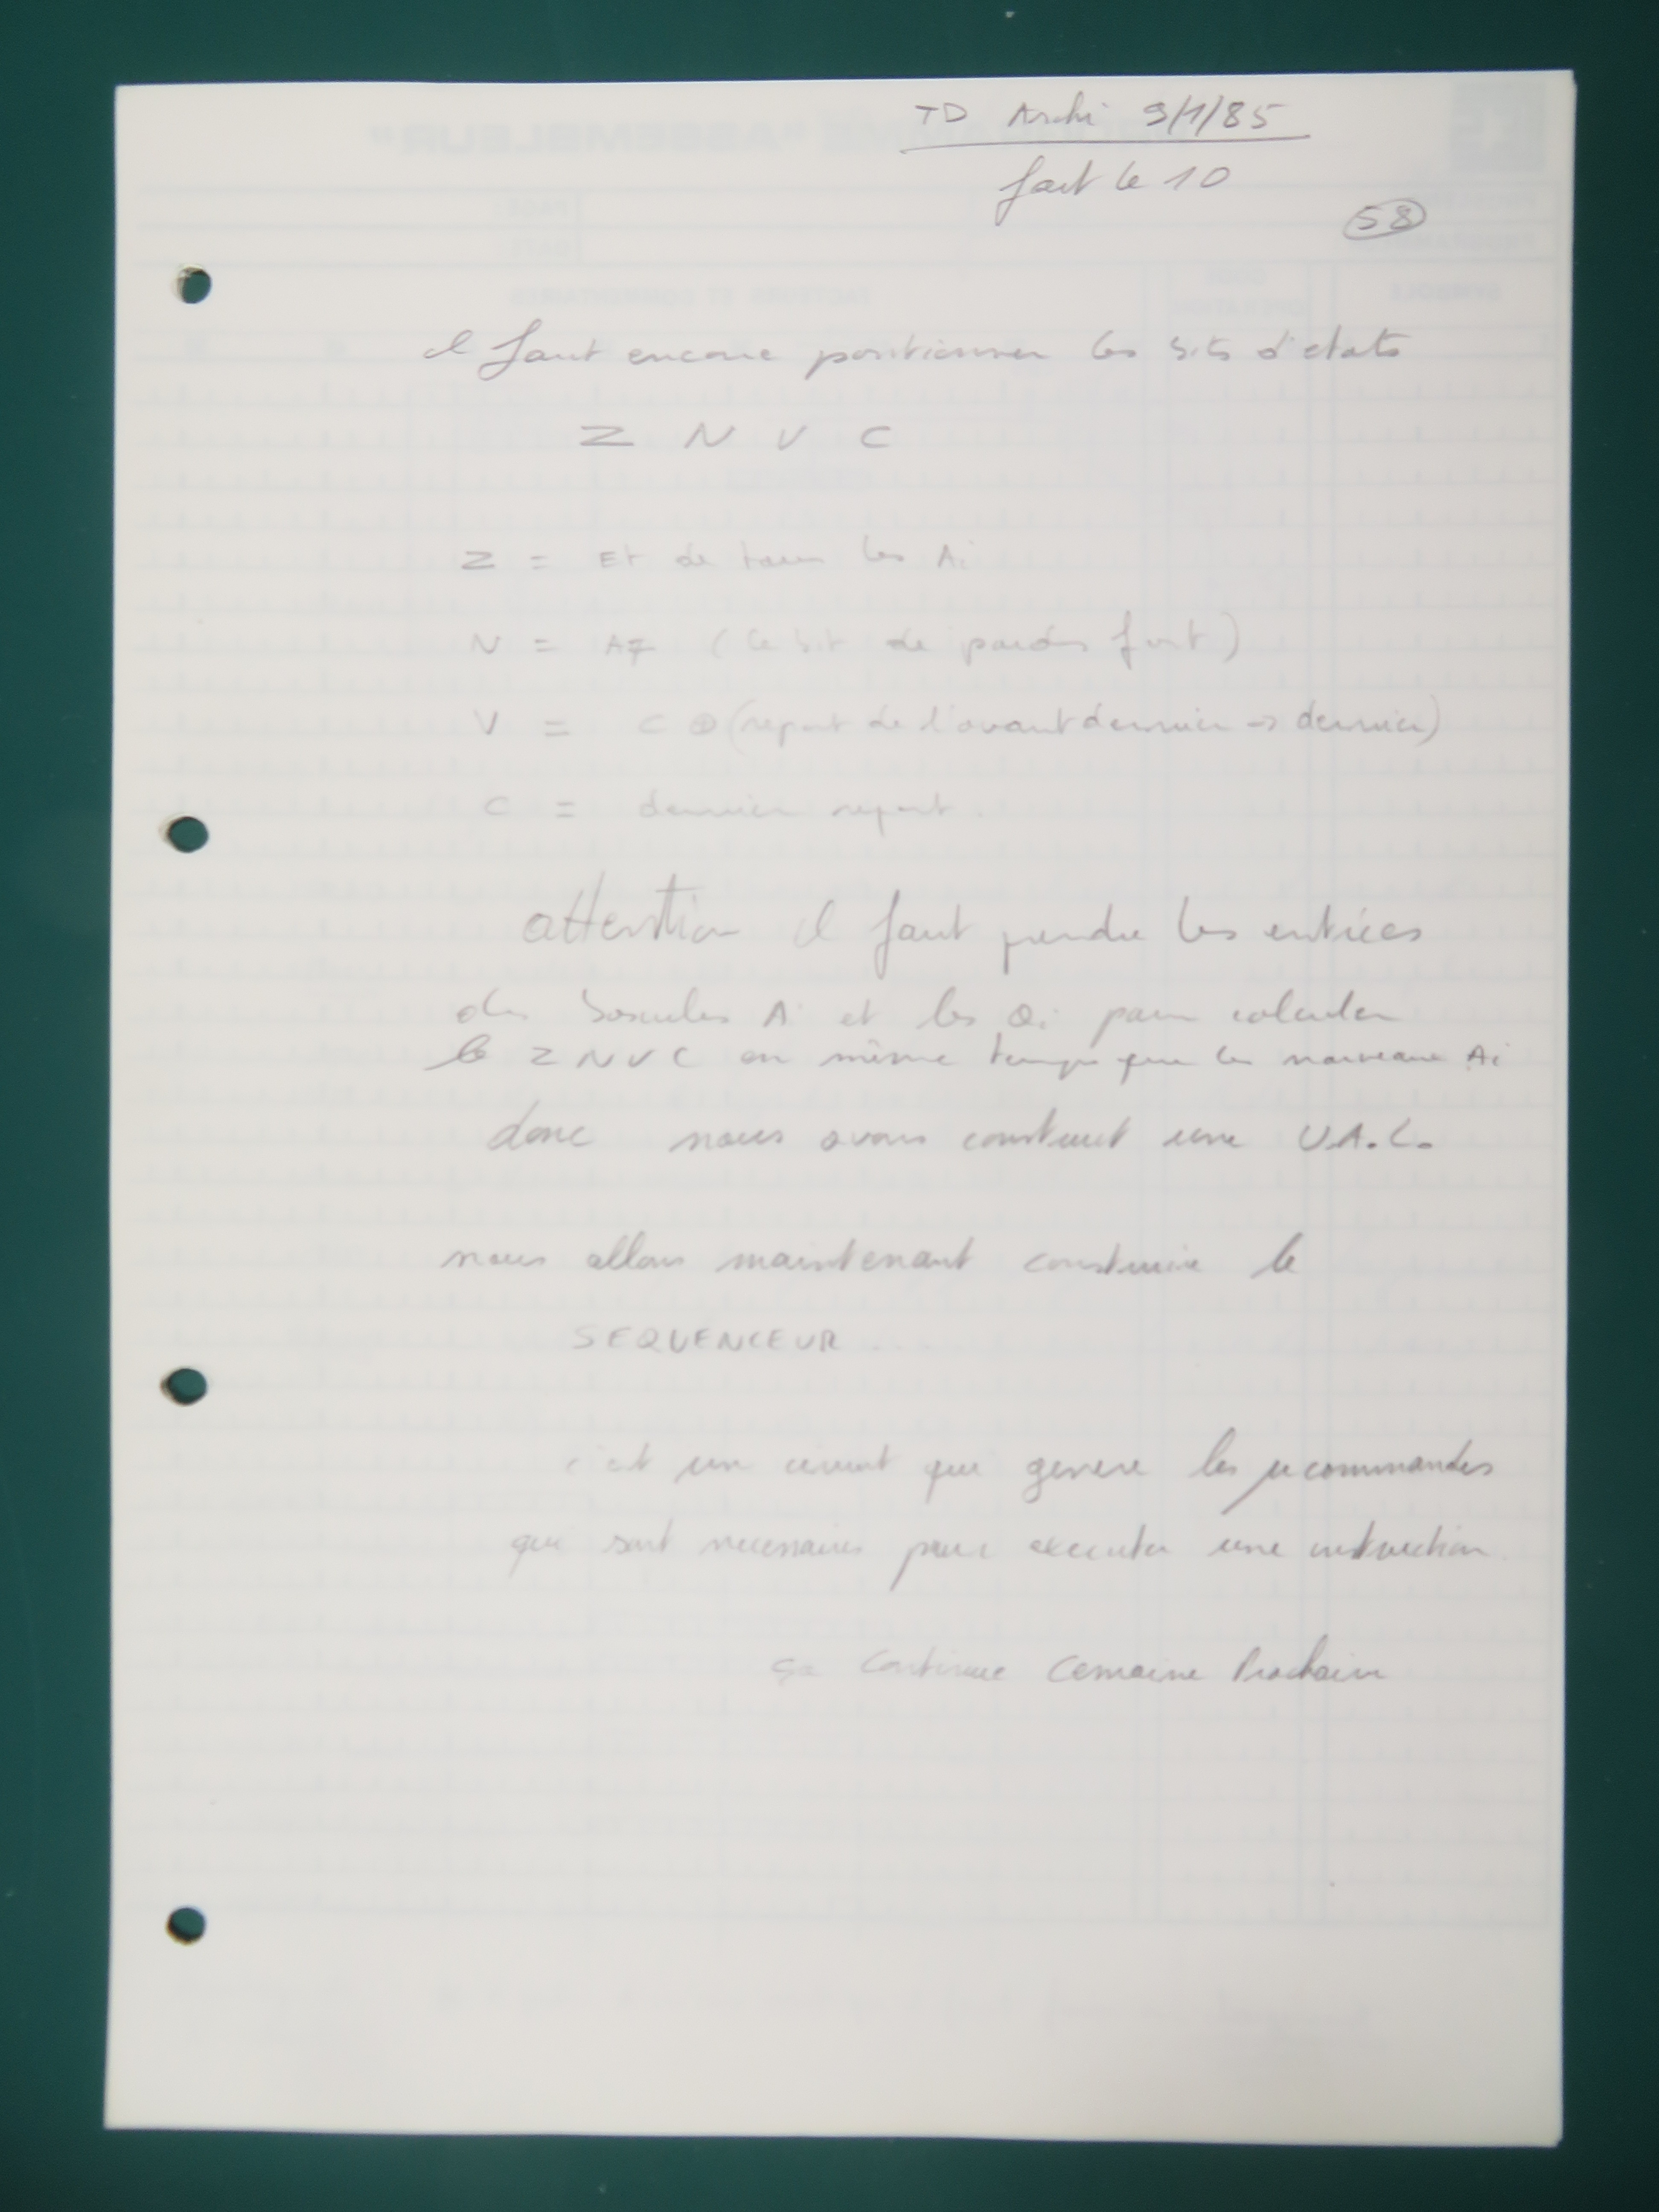 TD Archi 9/1/85
fait le 10
58
il faut encore positionner les bits d'etats
Z N V C
Z = Et de tous les Ai
N = A7 (le bit de poids fort)
V = C ⊕ (report de l'avant dernier → dernier)
C = dernier report.
attention il faut prendre les entrées
des bascules Ai et les Qi pour calculer
le Z N V C en même temps que les nouveaux Ai
donc nous avons construit une U.A.L.
nous allons maintenant construire le
SEQUENCEUR ....
c'est un circuit qui genere les µcommandes
qui sont necessaires pour executer une instruction.
ça Continue Cemaine Prochaine